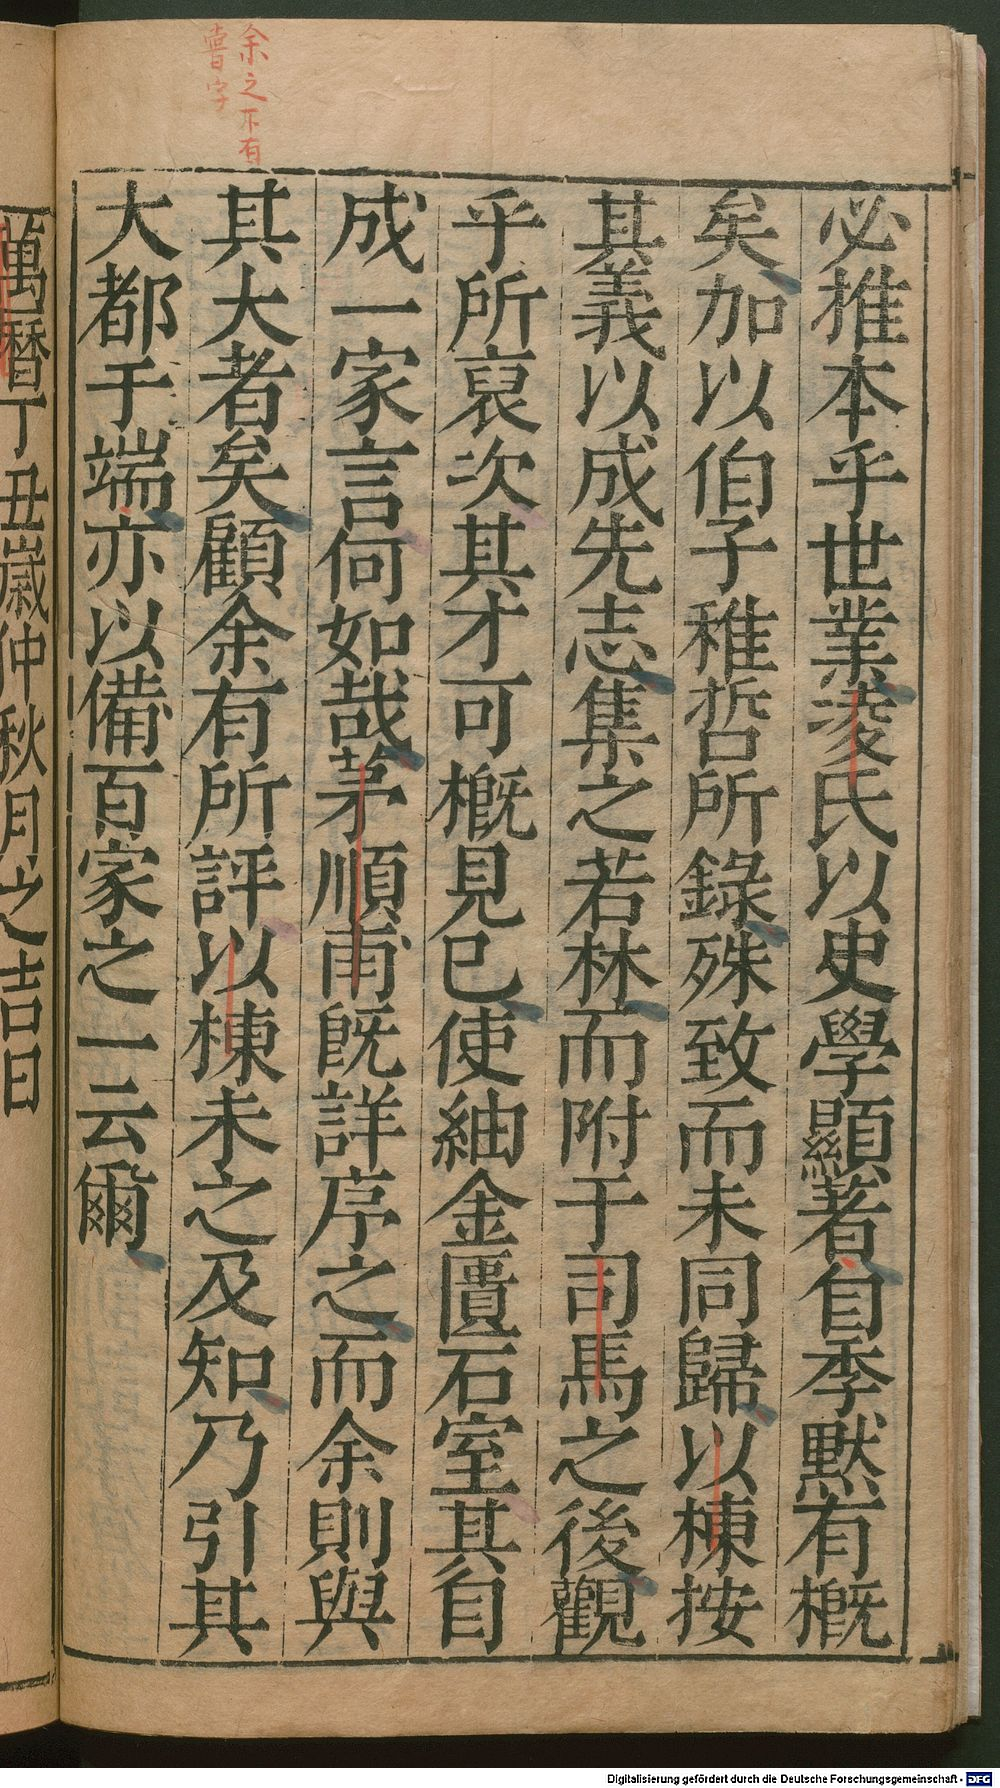 余之下有
嘗字
必推本乎世業凌氏以史學顯著自季默有概
矣加以伯子稚哲所錄殊致而未同歸以棟按
其義以成先志集之若林而附于司馬之後觀
乎所裒次其才可概見已使紬金匱石室其自
成一家言何如哉茅順甫既詳序之而余則與
其大者矣顧余有所評以棟未之及知乃引其
大都于端亦以備百家之一云爾
萬曆丁丑歲仲秋月之吉日
Digitalisierung gefördert durch die Deutsche Forschungsgemeinschaft - DFG